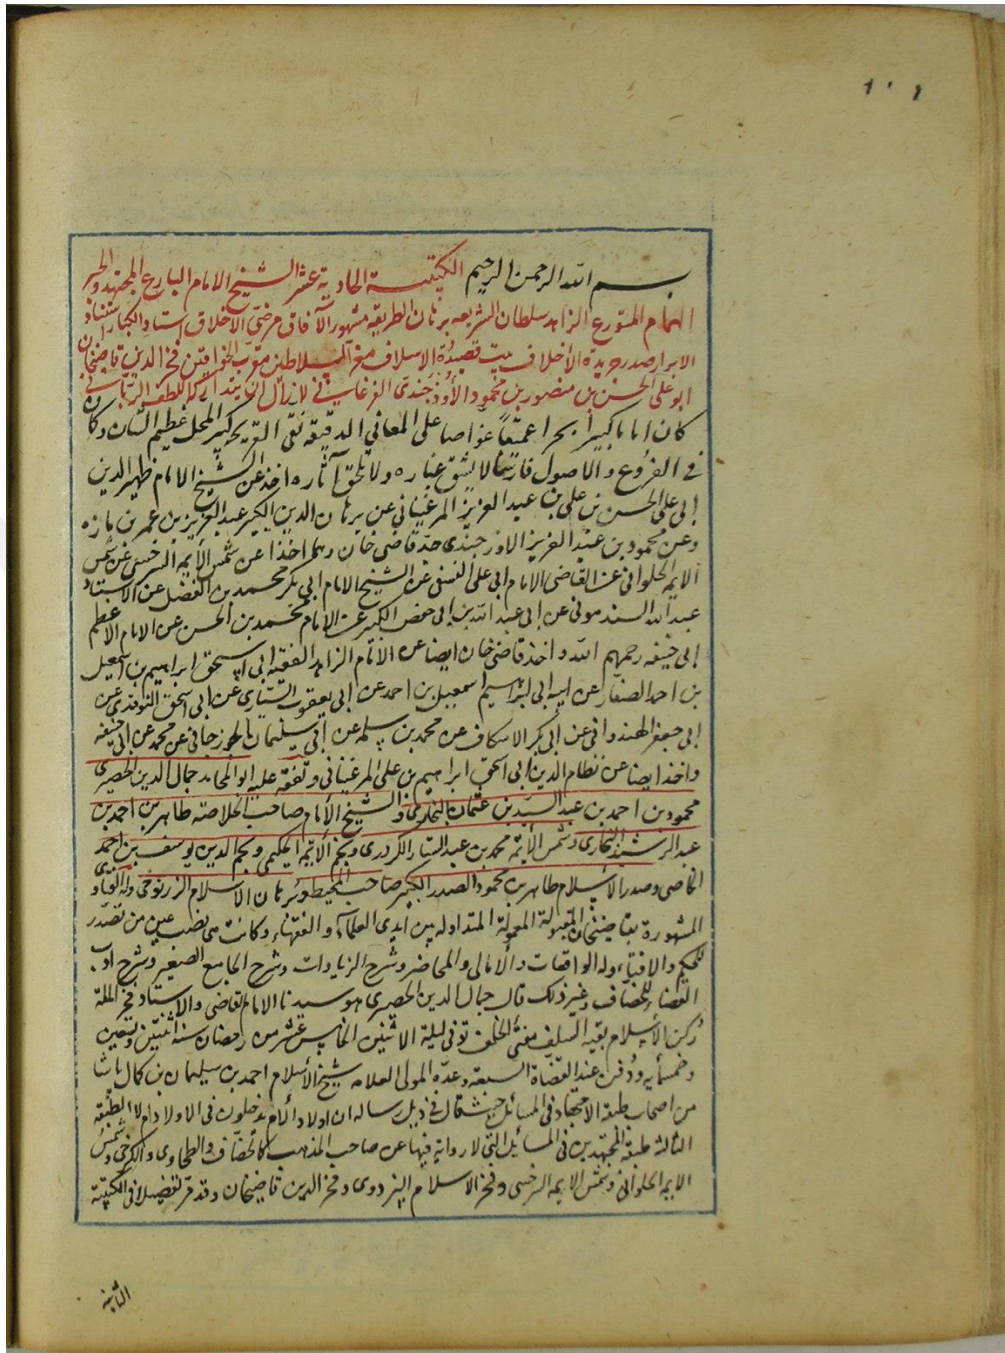 ١٠١
بسم الله الرحمن الرحيم الكتيبة الحادية عشر الشيخ الامام البارع المجتهد والحبر
الهمام المتورع الزاهد سلطان الشريعه برهان الطريقه مشهور الآفاق مرضي الاخلاق استاد الكبار استناد
الابرار صدر جريدة الأخلاف بيت قصيدة الاسلاف السلاطين مقرب الخواقين فخر الدين قاضيخان
ابو على الحسن بن منصور بن محمود الأوزجندى الفرغاني لازال ان يتداركه اللطف الرباني
كان اماما كبيرا بحرا عميقا غواصا على المعاني الدقيقه نقى القريحه كبير المحل عظيم الشان وكان
في الفروع والاصول فارسا لا يشق غباره ولا يلحق آثاره اخذ عن الشيخ الامام ظهير الدين
ابى على الحسن بن على بن عبد العزيز المرغيناني عن برهان الدين الكبير عبد العزيز بن عمر بن مازه
وعن محمود بن عبد العزيز الاوزجندى جد قاضى خان وهما اخذا عن شمس الأيمه السرخسى عن شمس
الايمه الحلواني عن القاضى الامام ابى على النسفى عن الشيخ الامام ابى بكر محمد بن الفضل عن الاستاد
عبد الله السبذمونى عن ابى عبد الله بن ابى حفص الكبير عن الامام محمد بن الحسن عن الامام الاعظم
ابى حنيفه رحمهم الله واخذ قاضى خان ايضا عن الامام الزاهد الفقيه ابى اسحق ابراهيم بن اسمعيل
بن احمد الصفار عن ابيه ابى ابراهيم اسمعيل بن احمد عن ابى يعقوب السيارى عن ابى اسحق النوقدى عن
ابى جعفر الهندوانى عن ابى بكر الاسكاف عن محمد بن سلمه عن ابى سليمان الجوزجانى عن محمد عن ابى حنيفه
واخذ ايضا عن نظام الدين ابى اسحق ابراهيم بن على المرغينانى وتفقه عليه ابو المحامد جمال الدين الحصيرى
محمود بن احمد بن عبد السيد بن عثمان البخارى والشيخ الأمام صاحب الخلاصه طاهر بن احمد بن
عبد الرشيد البخارى وشمس الأيمة محمد بن عبد الستار الكردرى ونجم الأيمه الحكيمى ونجم الدين يوسف بن احمد
الخاصى وصدر الأسلام طاهر بن محمود الصدر الكبير صاحب المحيط وبرهان الاسلام الزرنوجى وله الفتاوى
المشهورة بقاضيخان المقبولة المعمولة المتداوله بين ايدى العلماء والفقهاء وكانت هى نصب عين من تصدر
للحكم والافتاء وله الواقعات والأمالى والمحاضر وشرح الزيادات وشرح الجامع الصغير وشرح ادب
القضاء للخصاف وغير ذلك قال جمال الدين الحصيرى هو سيدنا الامام القاضى والاستاد فخر الملة
ركن الأسلام بقية السلف مفتى الخلف توفى ليلة الاثنين الخامس عشر من رمضان سنة اثنتين وتسعين
وخمسمأيه ودفن عند القضاة السبعه وعده المولى العلامه شيخ الأسلام احمد بن سليمان بن كمال باشا
من اصحاب طبقة الاجتهاد فى المسائل حيث قال فى ذيل رساله ان اولاد ألام يدخلون فى الاولاد ام لا الطبقه
الثالثه طبقة المجتهدين فى المسائيل التى لا رواية فيها عن صاحب المذهب كالخصاف والطحاوى والكرخى وشمس
الايمه الحلوانى وشمس الايمه السرخسى وفخر الاسلام البزدوى وفخر الدين قاضيخان وقد مر تفضيلا فى الكتيبة
الثانيه